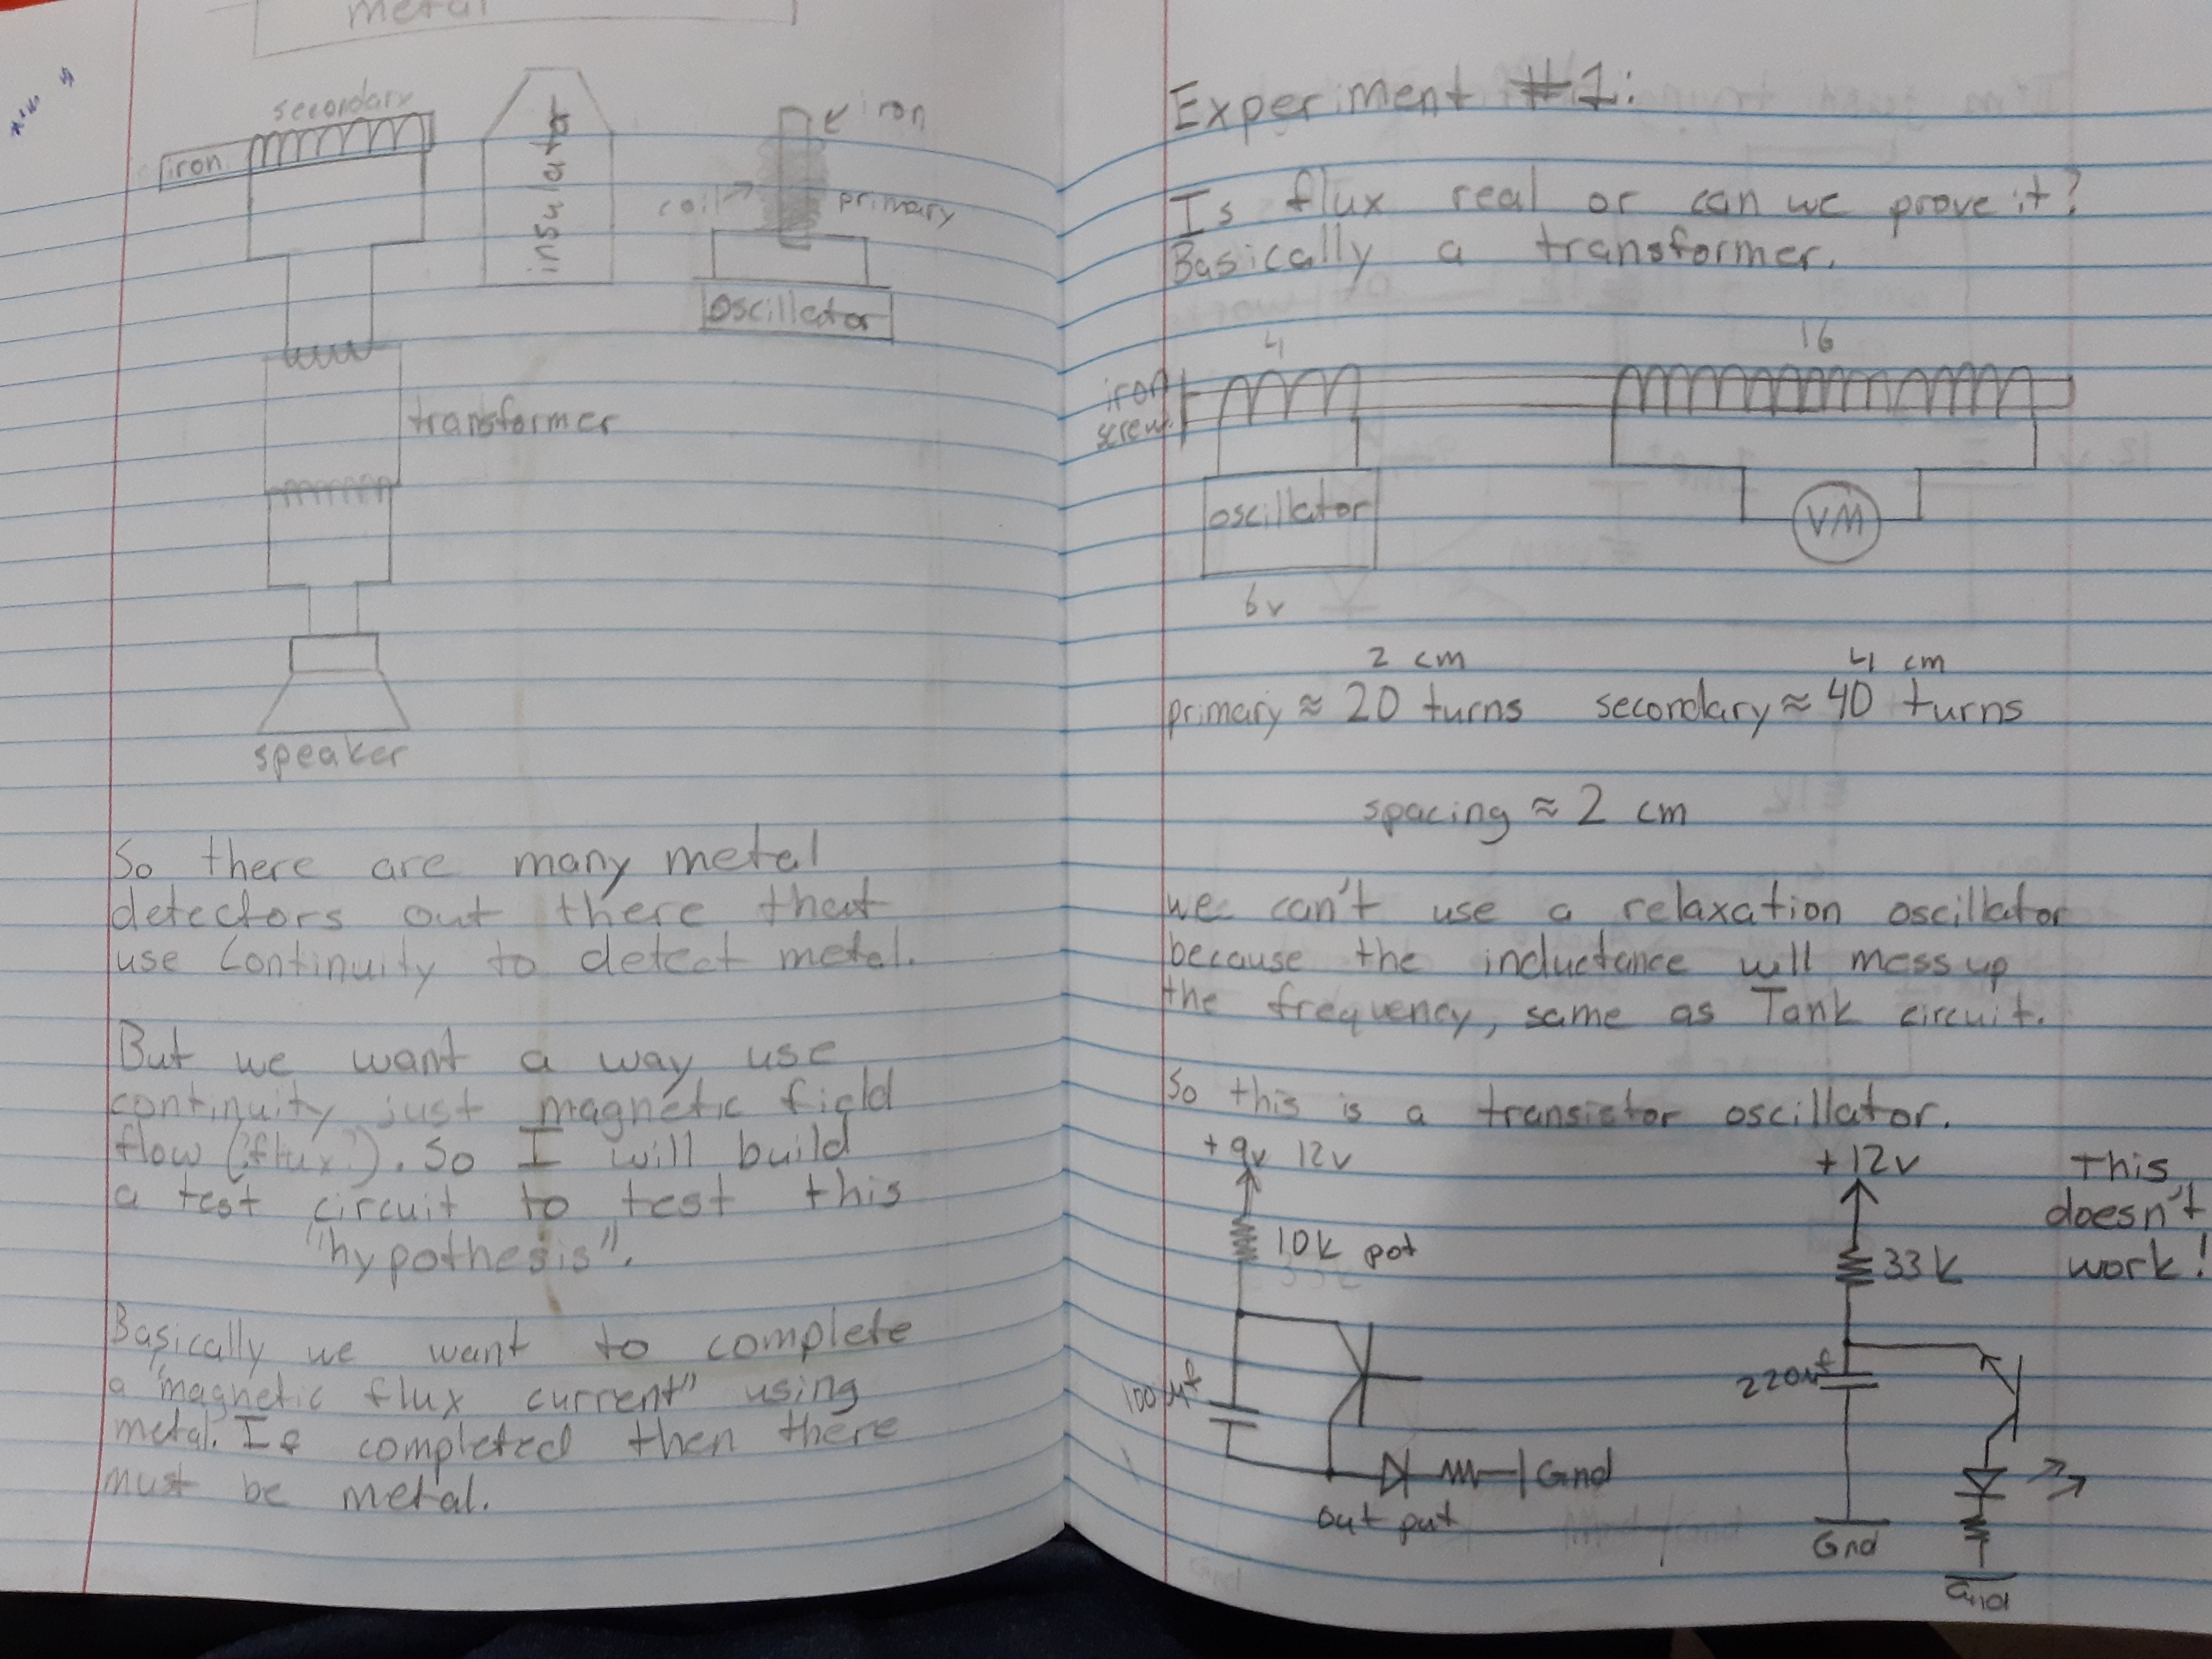 metal
secondary
iron
insulator
iron
coil
primary
oscillator
transformer
speaker
So there are many metal
detectors out there that
use Continuity to detect metal.
But we want a way use
continuity just magnetic field
flow ("flux"). So I will build
a test circuit to test this
"hypothesis".
Basically we want to complete
a "magnetic flux current" using
metal. If completed then there
must be metal.
Experiment #1:
Is flux real or can we prove it?
Basically a transformer.
4
16
iron
screw
oscillator
VM
6v
2 cm
4 cm
primary ≈ 20 turns secondary ≈ 40 turns
spacing ≈ 2 cm
we can't use a relaxation oscillator
because the inductance will mess up
the frequency, same as Tank circuit.
So this is a transistor oscillator.
+9v 12v
+12v
This
doesn't
work!
10k pot
33k
100µf
220µf
Gnd
out put
Gnd
Gnd